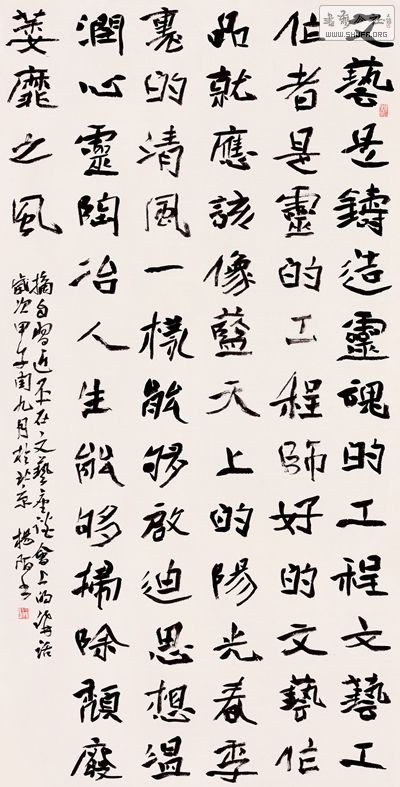 文藝是鑄造靈魂的工程文藝工
作者是靈的工程師好的文藝作
品就應該像藍天上的陽光春季
裏的清風一樣能够啟迪思想温
潤心靈陶冶人生能够掃除頹廢
萎靡之風
摘自習近平在文藝座談會上的講話
歲次甲午閏九月於北京